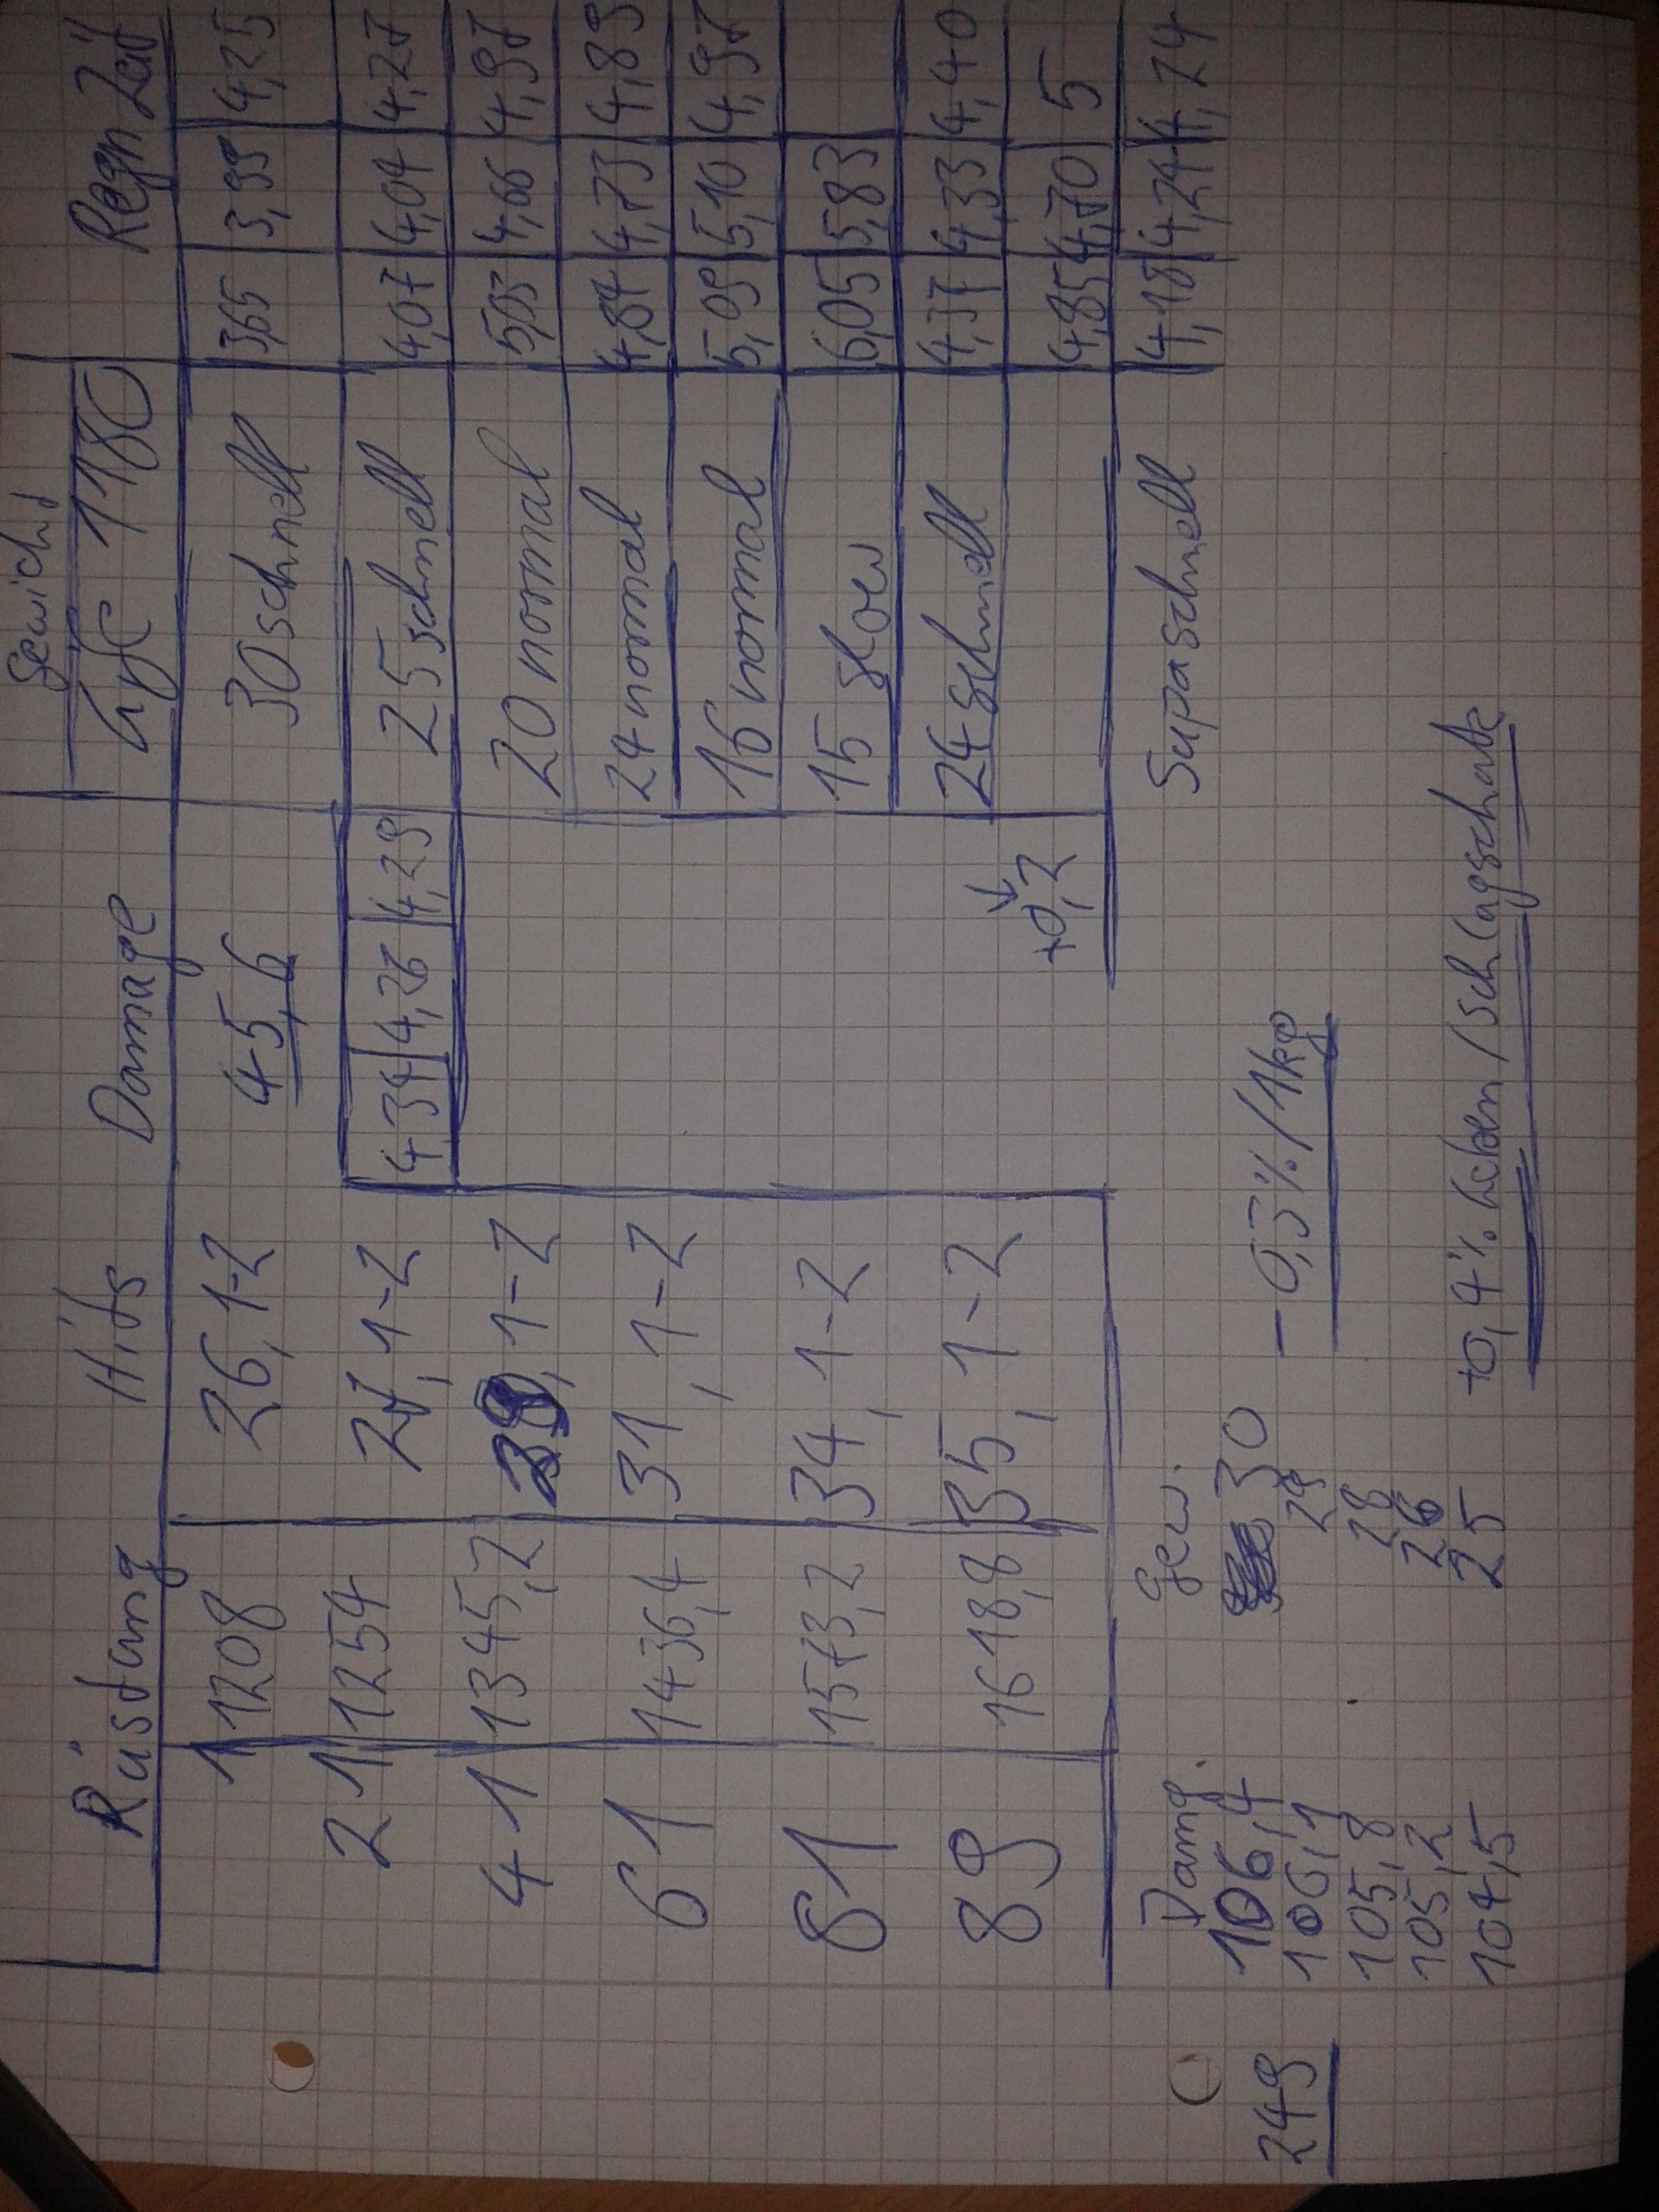 Gewicht
Rüstung Hits Damage 1180 Regn Zeit
1 1208 26,1-2 4-5,6 30 schnell 3,65 3,99 4,25
21 1254 27,1-2 4,31 4,26 4,29 25 schnell 4,07 4,04 4,27
41 1345,2 29,1-2 20 normal 5,03 4,66 4,97
61 1436,4 31,1-2 24 normal 4,87 4,73 4,89
16 normal 5,09 5,10 4,97
81 1573,2 34,1-2 15 slow 6,05 5,83
89 1618,8 35,1-2 24 schnell 4,37 4,33 4,40
+0,2 4,85 4,70 5
Damg. Gew. Supaschnell 4,18 4,24 4,24
249 106,4 30 -0,3%/1kg
106,1 29
105,8 28
105,2 26
104,5 25 +0,4% Leben/Schlagschatk